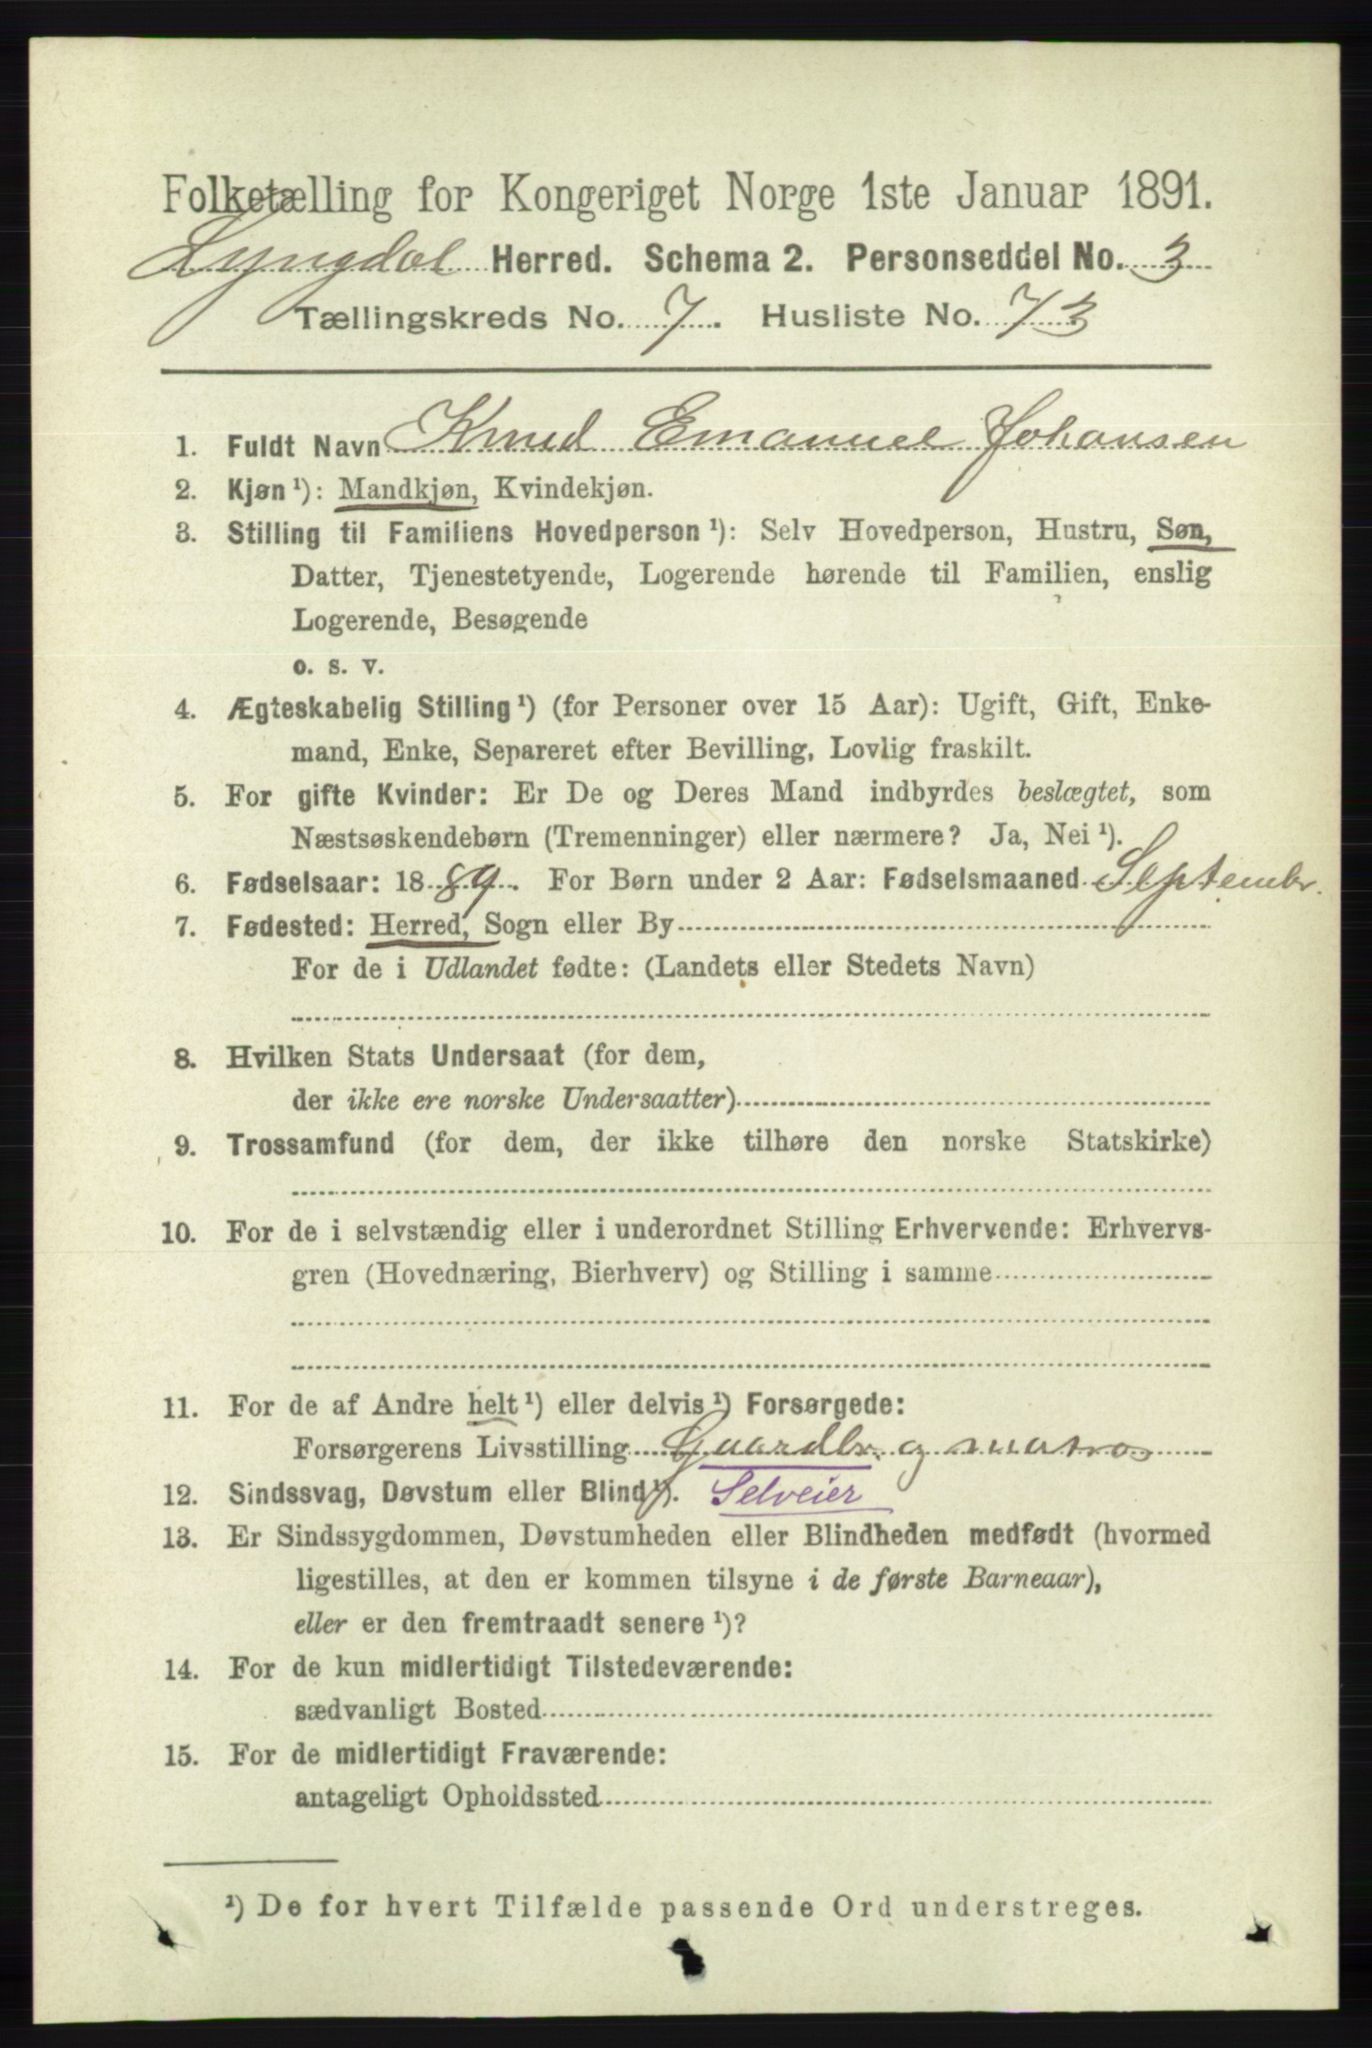 Folketælling for Kongeriget Norge 1ste Januar 1891.
Lyngdal Herred. Schema 2. Personseddel No. 3
Tællingskreds No. 7. Husliste No. 73
1. Fuldt Navn Knud Emanuel Johansen
2. Kjøn ¹): Mandkjøn, Kvindekjøn.
3. Stilling til Familiens Hovedperson ¹): Selv Hovedperson, Hustru, Søn,
Datter, Tjenestetyende, Logerende hørende til Familien, enslig
Logerende, Besøgende
o. s. v.
4. Ægteskabelig Stilling ¹) (for Personer over 15 Aar): Ugift, Gift, Enke-
mand, Enke, Separeret efter Bevilling, Lovlig fraskilt.
5. For gifte Kvinder: Er De og Deres Mand indbyrdes beslægtet, som
Næstsøskendebørn (Tremenninger) eller nærmere? Ja, Nei ¹).
6. Fødselsaar: 1889. For Børn under 2 Aar: Fødselsmaaned Septembr.
7. Fødested: Herred, Sogn eller By
For de i Udlandet fødte: (Landets eller Stedets Navn)
8. Hvilken Stats Undersaat (for dem,
der ikke ere norske Undersaatter)
9. Trossamfund (for dem, der ikke tilhøre den norske Statskirke)
10. For de i selvstændig eller i underordnet Stilling Erhvervende: Erhvervs-
gren (Hovednæring, Bierhverv) og Stilling i samme
11. For de af Andre helt ¹) eller delvis ¹) Forsørgede:
Forsørgerens Livsstilling Gaardbr. og matros
12. Sindssvag, Døvstum eller Blind ¹). Selveier
13. Er Sindssygdommen, Døvstumheden eller Blindheden medfødt (hvormed
ligestilles, at den er kommen tilsyne i de første Barneaar),
eller er den fremtraadt senere ¹)?
14. For de kun midlertidigt Tilstedeværende:
sædvanligt Bosted
15. For de midlertidigt Fraværende:
antageligt Opholdssted
¹) De for hvert Tilfælde passende Ord understreges.